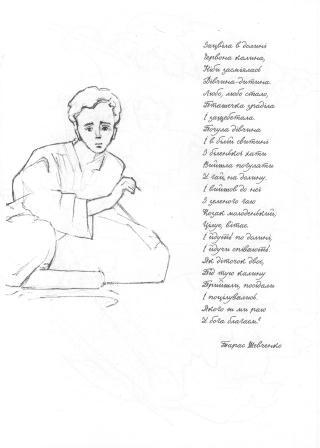 Зацвіла в долині
Червона калина,
Ніби засміялась
Дівчина-дитина.
Любо, любо стало,
Пташечка зраділа
І защебетала.
Почула дівчина
І в білій свитині
З біленької хати
Вийшла погуляти
У гай, на долину.
І вийшов до неї
З зеленого гаю
Козак молоденький;
Цілує, вітає.
І йдуть по долині,
І йдучи співають.
Як діточок двоє,
Під тую калину
Прийшли, посідали
І поцілувались.
Якого ж ми раю
У бога благаєм?
Тарас Шевченко